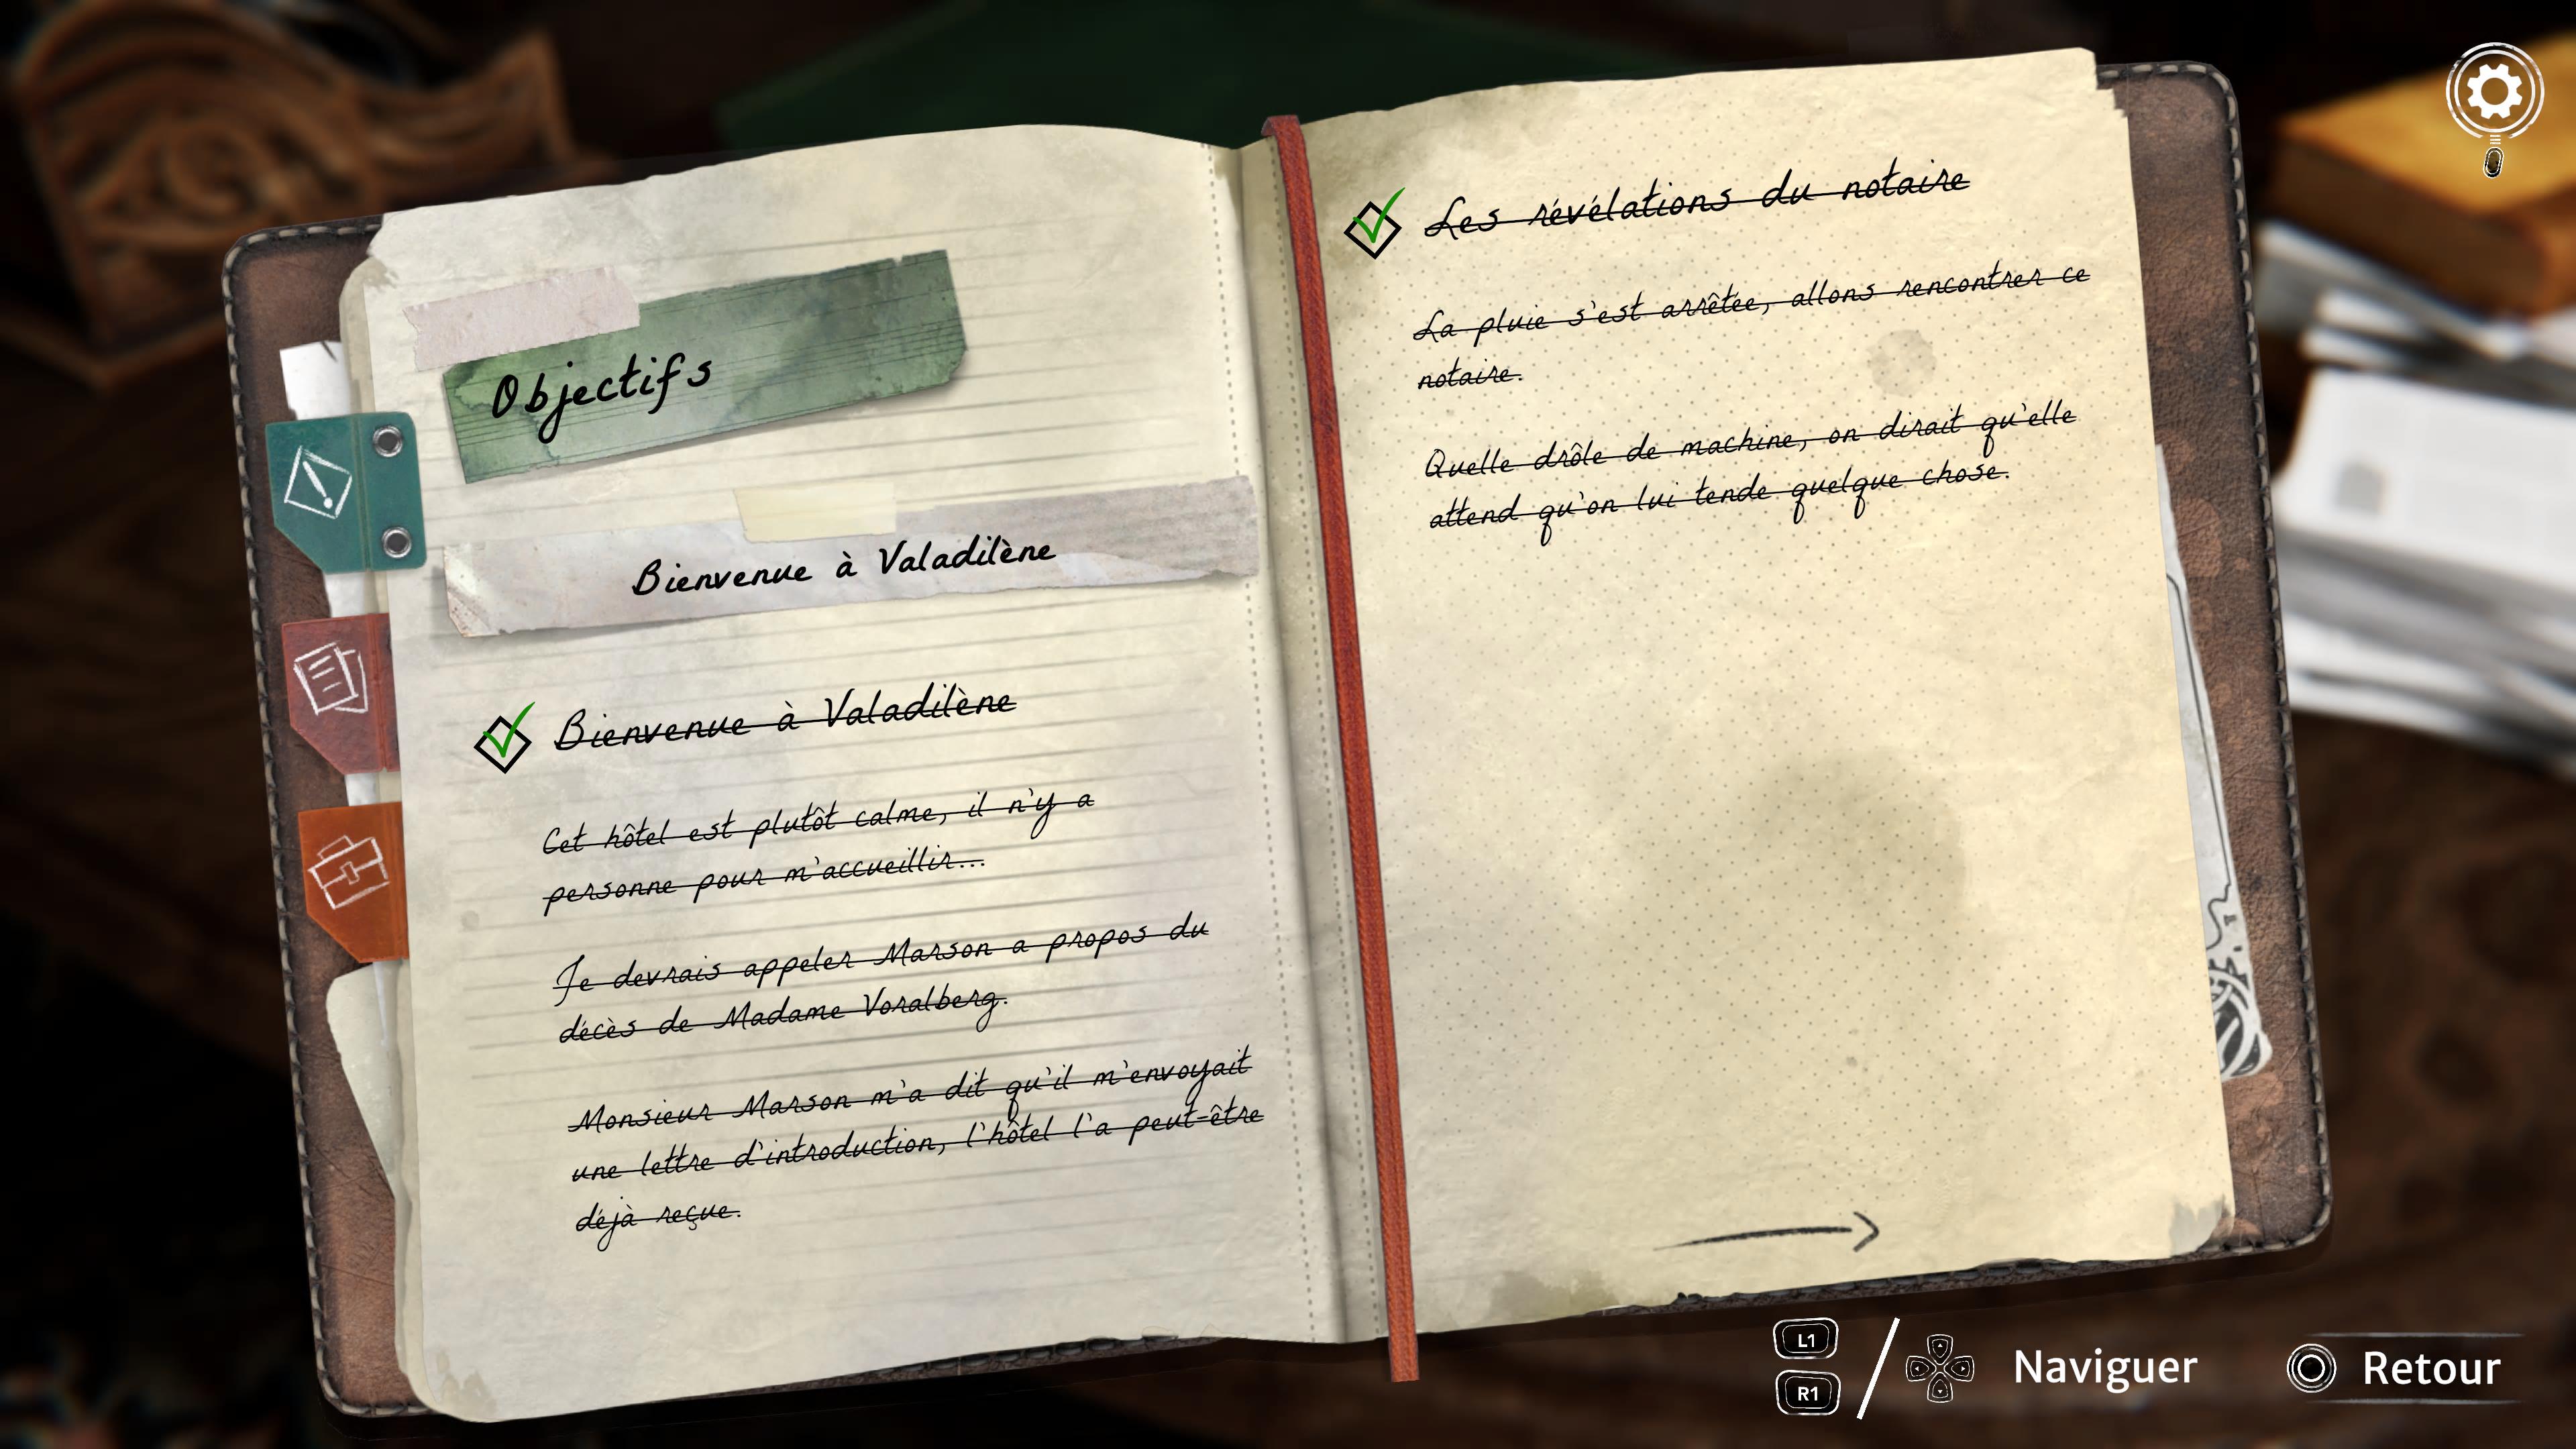 Objectifs
Bienvenue à Valadilène
Bienvenue à Valadilène
Cet hôtel est plutôt calme, il n'y a
personne pour m'accueillir...
Je devrais appeler Marson a propos du
décès de Madame Voralberg.
Monsieur Marson m'a dit qu'il m'envoyait
une lettre d'introduction, l'hôtel l'a peut-être
déjà reçue.
Les révélations du notaire
La pluie s'est arrêtée, allons rencontrer ce
notaire.
Quelle drôle de machine, on dirait qu'elle
attend qu'on lui tende quelque chose.
L1
R1
Naviguer
Retour